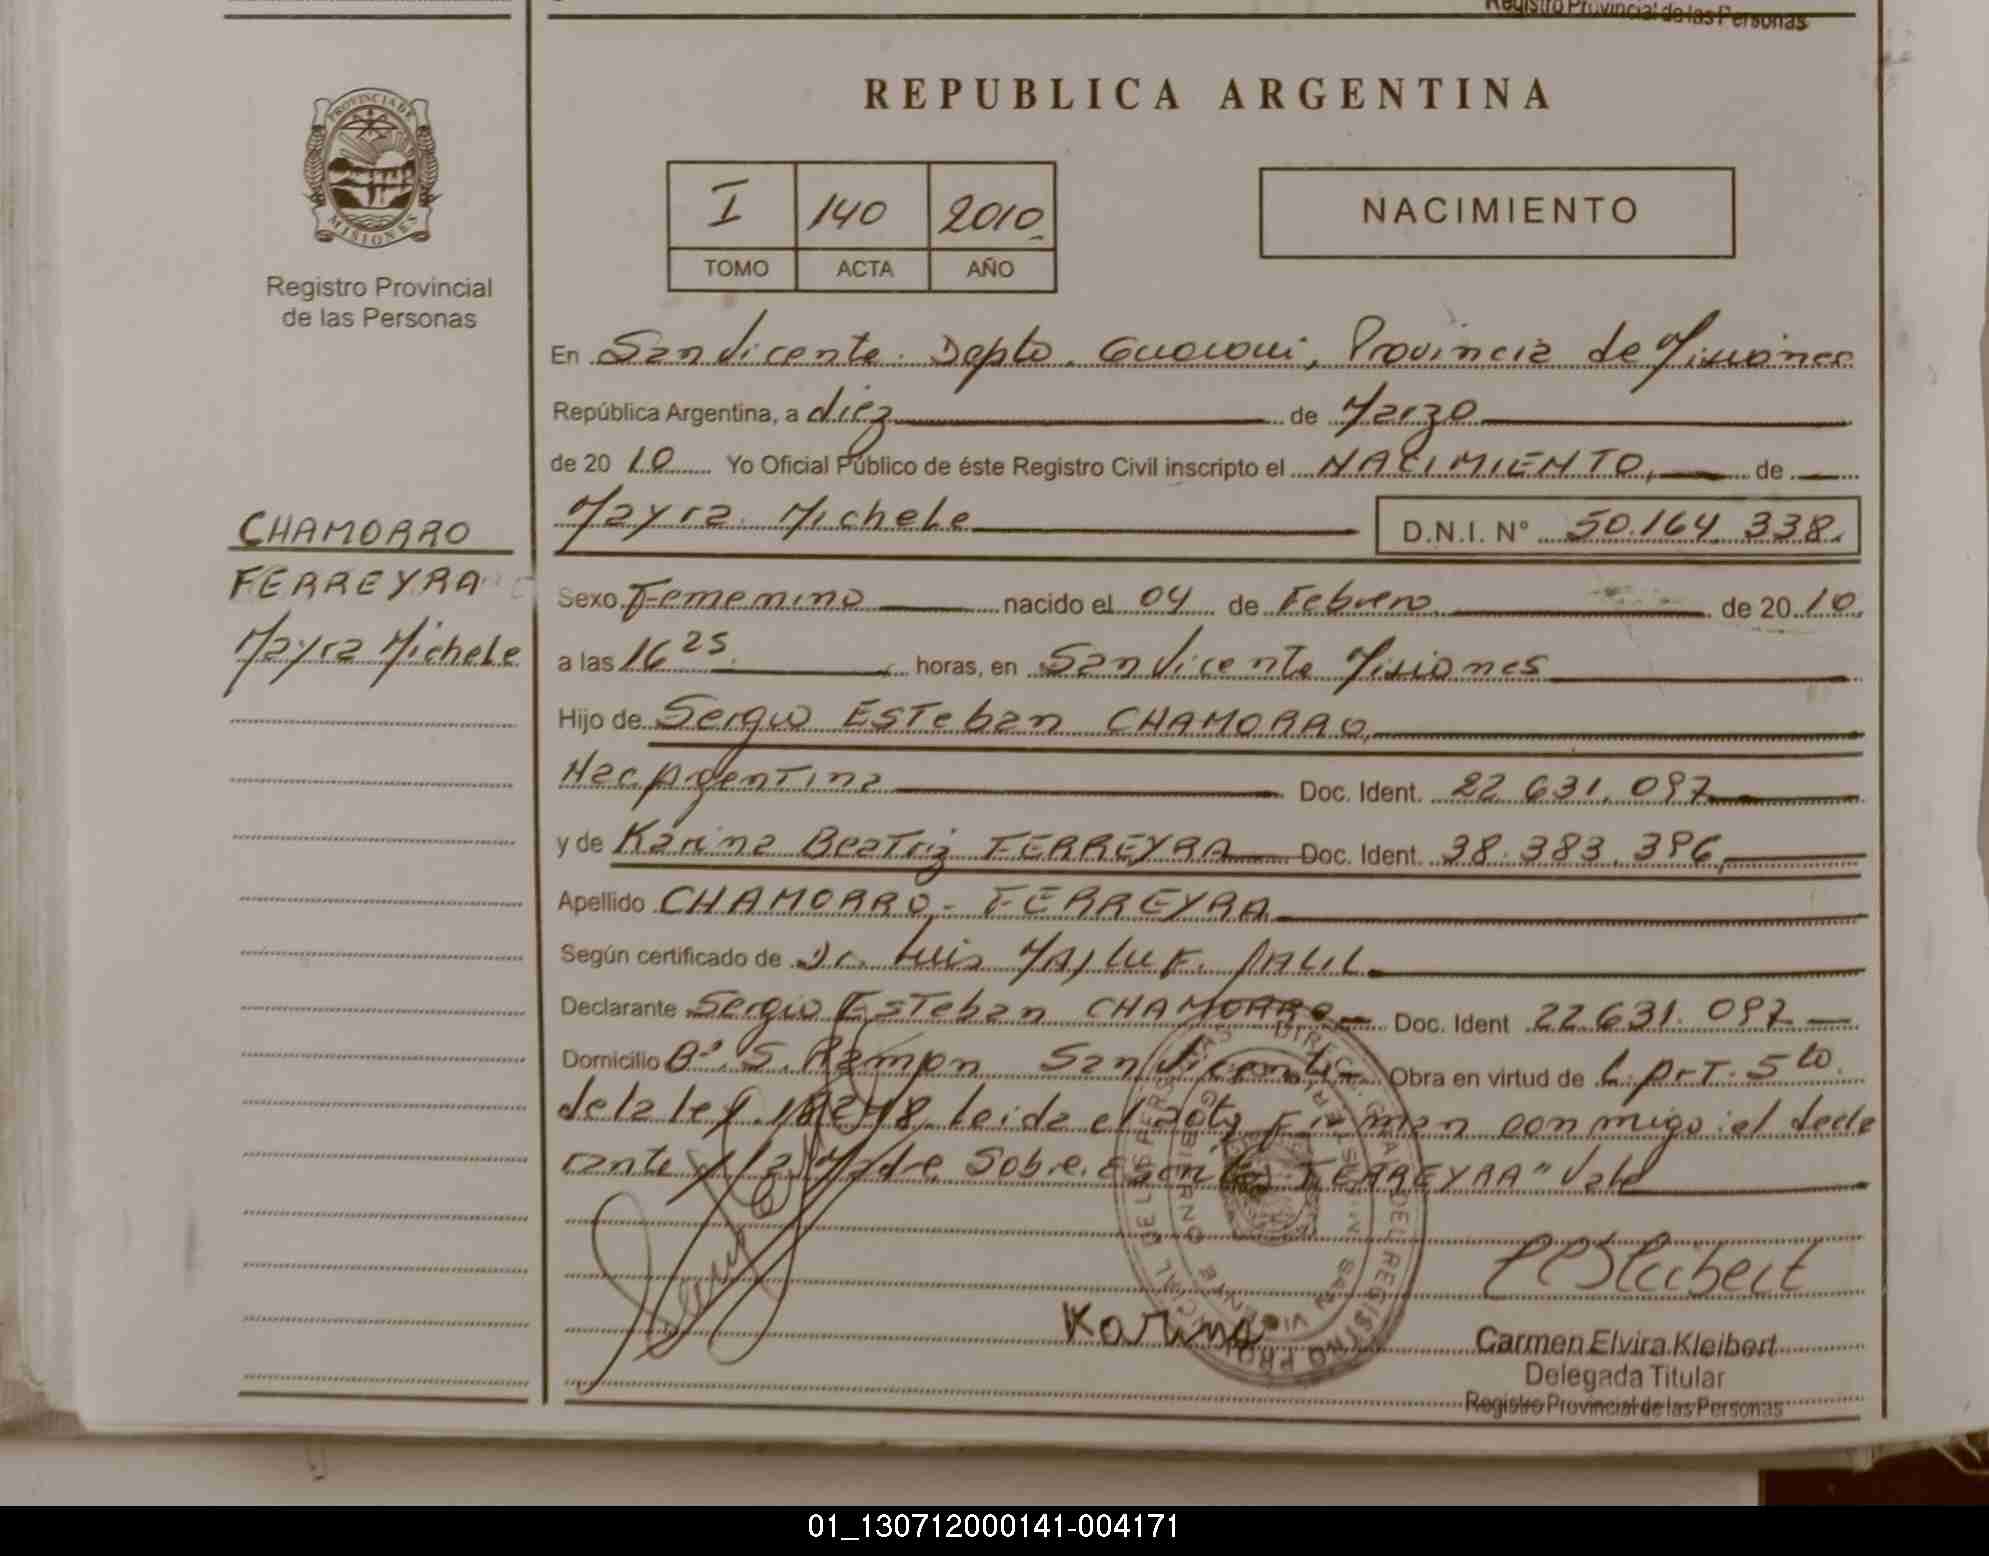 Registro Provincial de las Personas
REPUBLICA ARGENTINA
PROVINCIA DE MISIONES
Registro Provincial
de las Personas
I 140 2010
TOMO ACTA AÑO
NACIMIENTO
En San Vicente. Depto. Guaraní, Provincia de Misiones
República Argentina, a diez de Marzo
de 2010 Yo Oficial Público de éste Registro Civil inscripto el NACIMIENTO, de
Mayra Michele D.N.I. Nº 50.164.338.
CHAMORRO
FERREYRA
Mayra Michele
Sexo Femenino nacido el 04 de Febrero de 2010
a las 16 25 horas, en San Vicente Misiones
Hijo de Sergio Esteban CHAMORRO,
Nac. Argentina Doc. Ident. 22.631.097
y de Karina Beatriz FERREYRA Doc. Ident. 38.383.396,
Apellido CHAMORRO - FERREYRA
Según certificado de Dr. Luis
Declarante Sergio Esteban CHAMORRO Doc. Ident 22.631.097
Domicilio Bº. S. Ramon San Vicente Obra en virtud de L. Art. 5to.
de la ley 18248. Leida el acta Firman conmigo el decla
rante y la Madre Sobre Escrito FERREYRA" Vale
Karina
Carmen Elvira Kleibert
Delegada Titular
Registro Provincial de las Personas
01_130712000141-004171